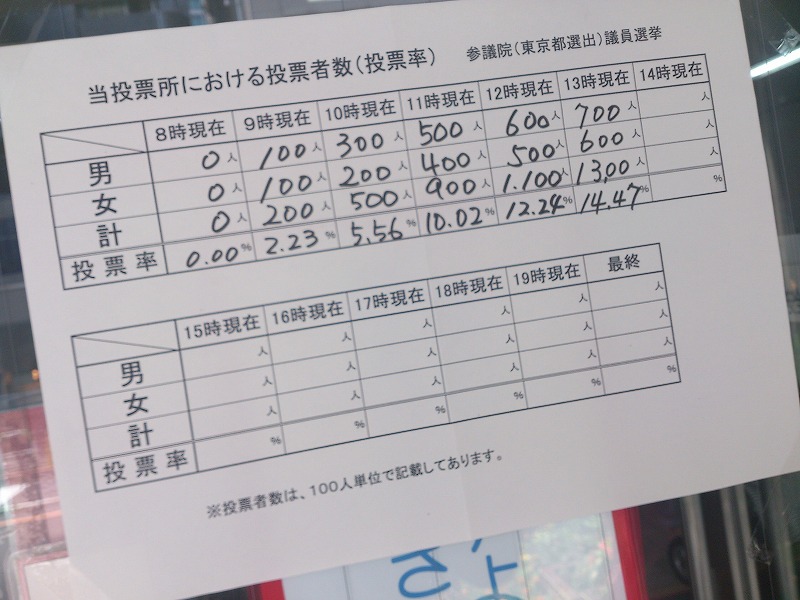 当投票所における投票者数(投票率) 参議院(東京都選出)議員選挙
8時現在 9時現在 10時現在 11時現在 12時現在 13時現在 14時現在
男 0人 100人 300人 500人 600人 700人 人
女 0人 100人 200人 400人 500人 600人 人
計 0人 200人 500人 900人 1.100人 13,00人 人
投票率 0.00% 2.23% 5.56% 10.02% 12.24% 14.47% %
15時現在 16時現在 17時現在 18時現在 19時現在 最終
男 人 人 人 人 人 人
女 人 人 人 人 人 人
計 人 人 人 人 人 人
投票率 % % % % % %
※投票者数は、100人単位で記載してあります。